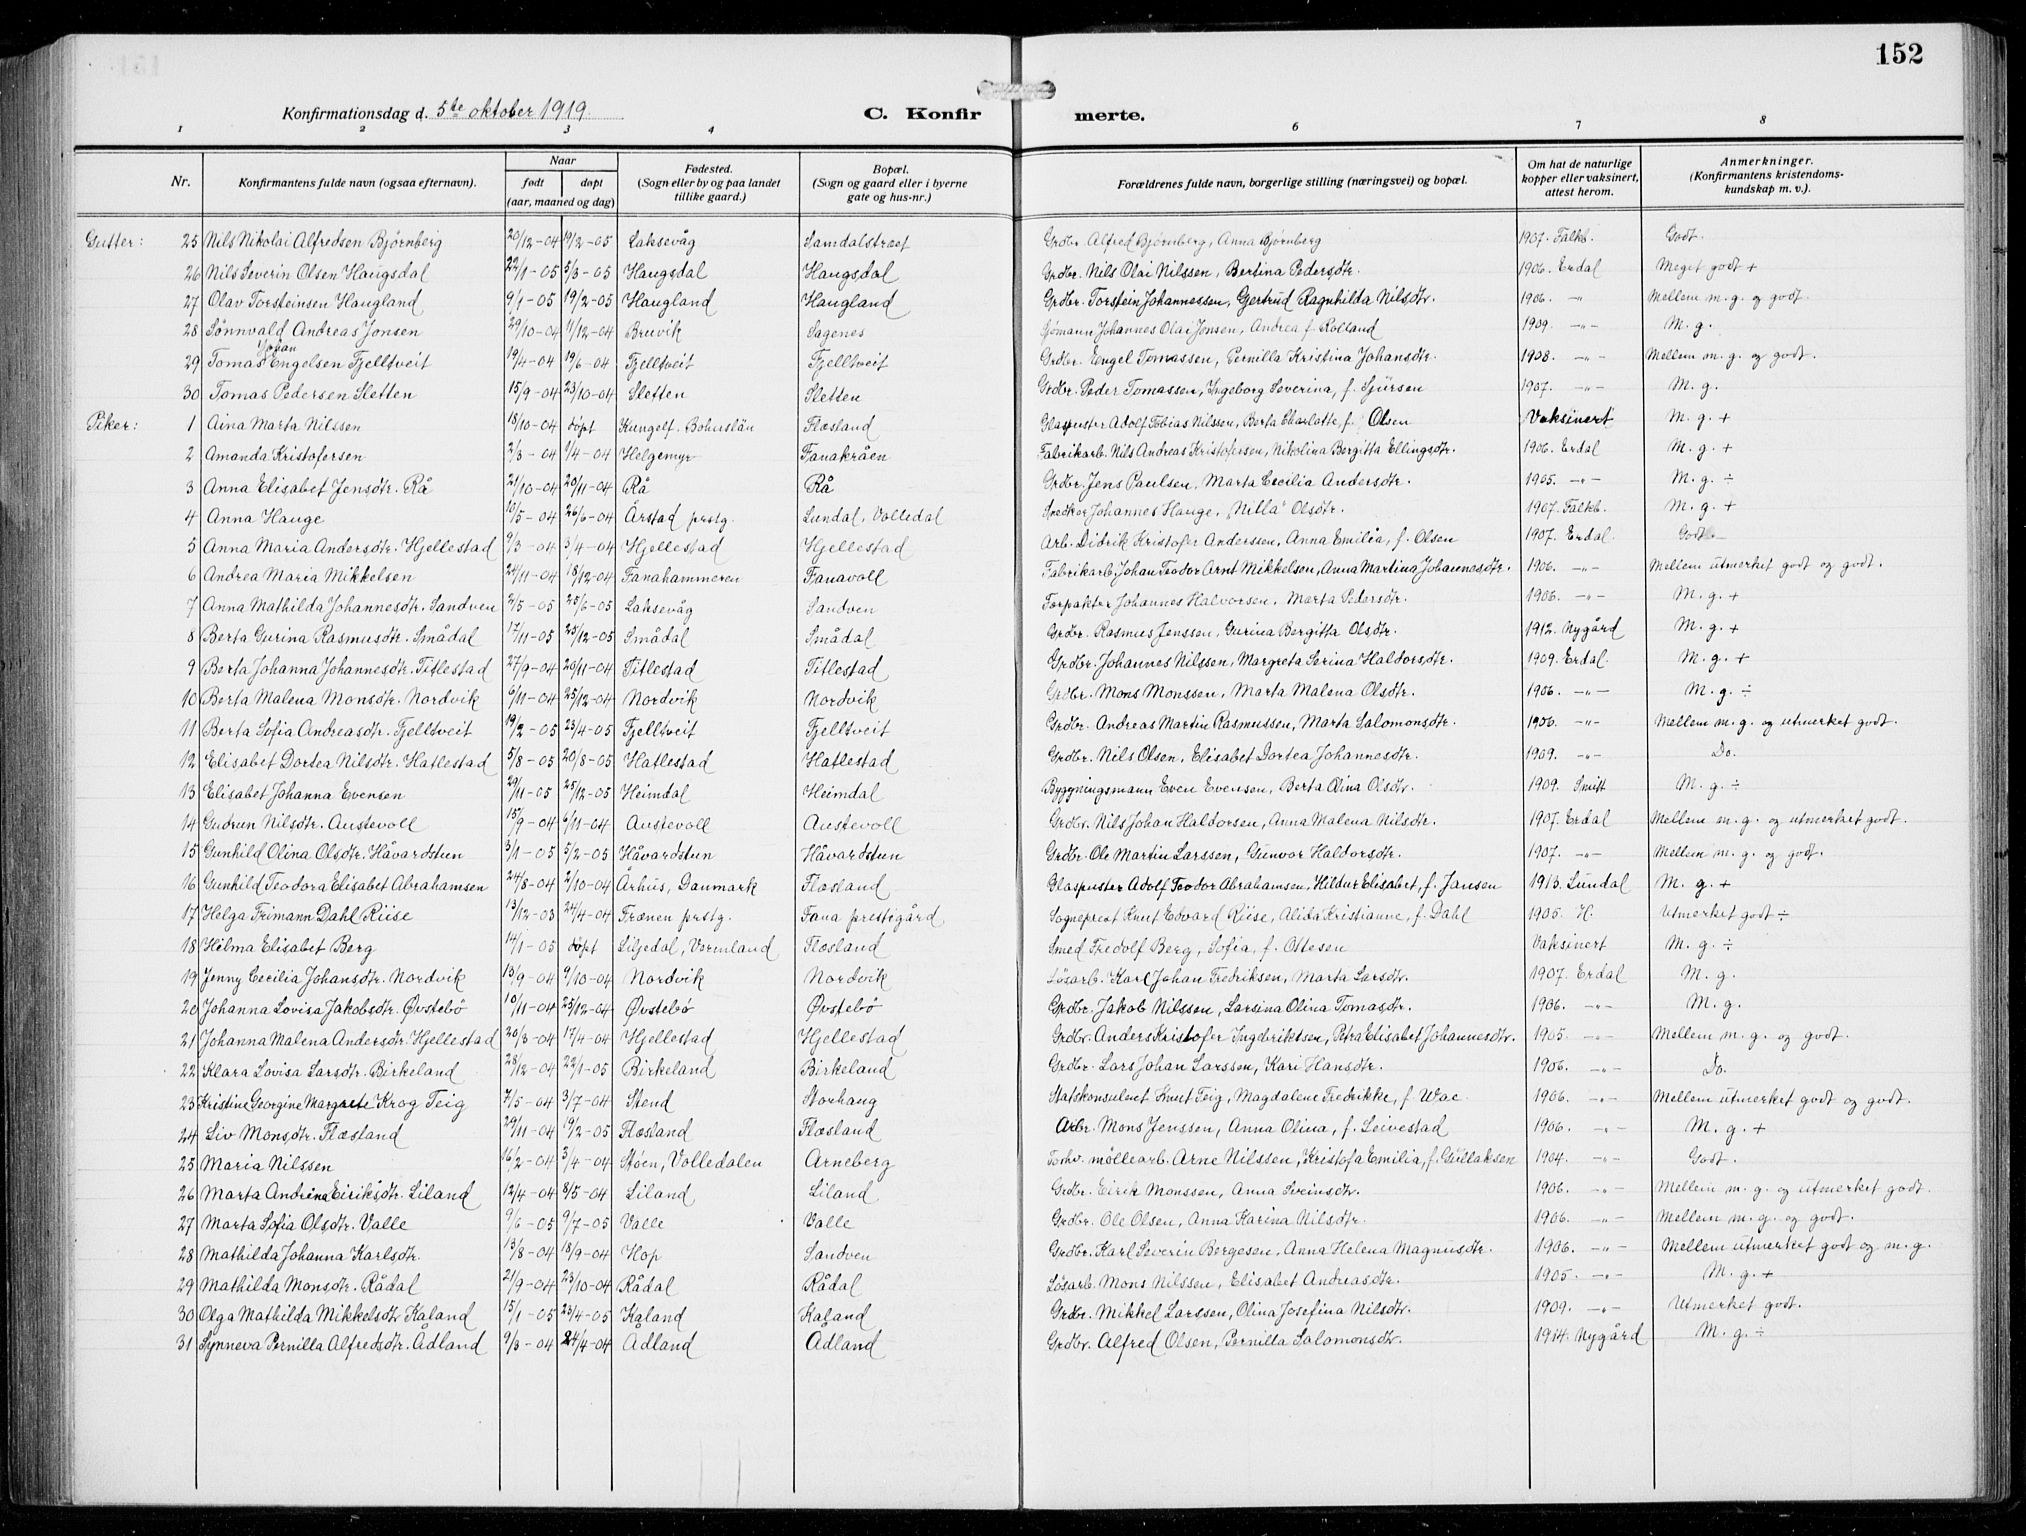 152
Konfirmationsdag d. 5te oktober 1919.
C. Konfirmerte.
1 2 3 4 6 7 8
Nr. Konfirmantens fulde navn (ogsaa efternavn). Naar født døpt (aar, maaned og dag) Fødested. (Sogn eller by og paa landet tillike gaard.) Bopæl. (Sogn og gaard eller i byerne gate og hus-nr.) Forældrenes fulde navn, borgerlige stilling (næringsvei) og bopæl. Om hat de naturlige kopper eller vaksinert, attest herom. Anmerkninger. (Konfirmantens kristendoms-kundskap m. v.).
Gutter: 25 Nils Nikolai Alfredsen Bjørnberg 20/12-04 19/2-05 Laksevåg Samdalstræet Grdbr. Alfred Bjørnberg, Anna Bjørnberg 1907. Falkb. Godt.
26 Nils Severin Olsen Haugsdal 22/1-05 5/3-05 Haugsdal Haugsdal Grdbr. Nils Olai Nilssen, Bertina Pedersdtr. 1906. Erdal Meget godt +
27 Olav Torsteinsen Haugland 9/1-05 19/2-05 Haugland Haugland Grdbr. Torstein Johannessen, Gertrud Ragnhilda Nilsdtr. 1906. -"- Mellem m. g. og godt.
28 Sønnvald Andreas Jonsen 29/10-04 11/12-04 Bruvik Sagenes Sjømann Johannes Olai Jonsen, Andrea f. Rolland 1909. -"- M. g.
29 Tomas Johan Engelsen Fjelltveit 19/4-04 19/6-04 Fjelltveit Fjelltveit Grdbr. Engel Tomassen, Pernilla Kristina Johansdtr. 1908. -"- Mellem m. g. og godt.
30 Tomas Pedersen Sletten 15/9-04 23/10-04 Sletten Sletten Grdbr. Peder Tomassen, Ingeborg Severina, f. Sjursen 1907. -"- M. g.
Piker: 1 Aina Marta Nilssen 18/10-04 døpt Kungelf. Bohuslän Flæsland Glaspuster Adolf Tobias Nilssen, Berta Charlotte, f. Olsen Vaksinert M. g. +
2 Amanda Kristofersen 2/3-04 1/4-04 Helgemyr Fanakråen Fabrikarb. Nils Andreas Kristofersen, Nikolina Bergitta Ellingsdtr. 1906. Erdal M. g. +
3 Anna Elisabet Jensdtr. Rå 21/10-04 20/11-04 Rå Rå Grdbr. Jens Paulsen, Marta Cecilia Andersdtr. 1905. -"- M. g. ÷
4 Anna Hauge 10/5-04 26/6-04 Årstad prstg. Lundal, Volledal Snedker Johannes Hauge, "Nilla" Olsdtr. 1907. Falkb. M. g. +
5 Anna Maria Andersdtr. Hjellestad 9/3-04 3/4-04 Hjellestad Hjellestad Arb. Didrik Kristofer Anderssen, Anna Emilia, f. Olsen 1907. Erdal. Godt
6 Andrea Maria Mikkelsen 24/11-04 18/12-04 Fanahammeren Fanavoll Fabrikarb. Johan Teodor Arnt Mikkelsen, Anna Martina Johannesdtr. 1906. -"- Mellem utmerket godt og godt.
7 Anna Mathilda Johannesdtr. Sandven 2/5-05 25/6-05 Laksevåg Sandven Forpakter Johannes Halvorsen, Marta Pedersdtr. 1906. -"- M. g. +
8 Berta Gurina Rasmusdtr. Smådal 17/11-05 25/12-05 Smådal Smådal Grdbr. Rasmus Jenssen, Gurina Bergitta Olsdtr. 1912. Nygård M. g. +
9 Berta Johanna Johannesdtr. Titlestad 27/9-04 20/11-04 Titlestad Titlestad Grdbr. Johannes Nilssen, Margreta Serina Haldorsdtr. 1909. Erdal. M. g. +
10 Berta Malena Monsdtr. Nordvik 6/11-04 25/12-04 Nordvik Nordvik Grdbr. Mons Monssen, Marta Malena Olsdtr. 1906. -"- M. g. ÷
11 Berta Sofia Andreasdtr. Fjelltveit 19/2-05 23/4-05 Fjelltveit Fjelltveit Grdbr. Andreas Martin Rasmussen, Marta Salomonsdtr. 1906. -"- Mellem m. g. og utmerket godt.
12 Elisabet Dortea Nilsdtr. Hatlestad 5/8-05 20/8-05 Hatlestad Hatlestad Grdbr. Nils Olsen, Elisabet Dortea Johannesdtr. 1909. -"- Do.
13 Elisabet Johanna Evensen 29/11-05 25/12-05 Heimdal Heimdal Byggningsmann Even Evensen, Berta Olina Olsdtr. 1909. Smitt M. g. ÷
14 Gudrun Nilsdtr. Austevoll 15/9-04 6/11-04 Austevoll Austevoll Grdbr. Nils Johan Haldorsen, Anna Malena Nilsdtr. 1907. Erdal Mellem m. g. og utmerket godt.
15 Gunhild Olina Olsdtr. Håvardstun 3/1-05 5/2-05 Håvardstun Håvardstun Grdbr. Ole Martin Larssen, Gunvor Haldorsdtr. 1907. -"- Mellem m. g. og godt.
16 Gunhild Teodora Elisabet Abrahamsen 24/8-04 2/10-04 Århus, Danmark Flæsland Glaspuster Adolf Teodor Abrahamsen, Hildur Elisabet, f. Jansen 1913. Lundal M. g. +
17 Helga Frimann Dahl Riise 13/12-03 24/4-04 Trænen prstg. Fana prestegård Sogneprest Knut Edvard Riise, Alida Kristianne, f. Dahl 1905. H. Utmerket godt ÷
18 Hilma Elisabet Berg 14/1-05 døpt Liljedal, Vermland Flæsland Smed Fredolf Berg, Sofia, f. Ottesen Vaksinert M. g. ÷
19 Jenny Cecilia Johansdtr. Nordvik 13/9-04 9/10-04 Nordvik Nordvik Løsarb. Karl Johan Fredriksen, Marta Larsdtr. 1907. Erdal M. g.
20 Johanna Lovisa Jakobsdtr. Øvstebø 10/11-04 25/12-04 Øvstebø Øvstebø Grdbr. Jakob Nilssen, Larsina Olina Tomasdtr. 1906. -"- M. g.
21 Johanna Malena Andersdtr. Hjellestad 20/3-04 17/4-04 Hjellestad Hjellestad Grdbr. Anders Kristofer Ingebriktsen, Petra Elisabet Johannesdtr. 1905. -"- Mellem m. g. og godt.
22 Klara Lovisa Larsdtr. Birkeland 28/12-04 22/1-05 Birkeland Birkeland Grdbr. Lars Johan Larssen, Kari Hansdtr. 1906. -"- Do.
23 Kristine Georgine Margrete Krog Teig 7/5-04 3/7-04 Stend Storhaug Statskonsulent Knut Teig, Magdalene Fredrikke, f. Wae 1906. -"- Mellem utmerket godt og godt.
24 Liv Monsdtr. Flæsland 29/11-04 19/2-05 Flæsland Flæsland Arbr. Mons Jenssen, Anna Olina, f. Leivestad 1906. -"- M. g. +
25 Maria Nilssen 16/2-04 3/4-04 Støen, Volledalen Arneberg Torhv. møllearb. Arne Nilssen, Kristofa Emilia, f. Gullaksen 1904. -"- Godt.
26 Marta Andrina Eiriksdtr. Liland 12/4-04 8/5-04 Liland Liland Grdbr. Eirik Monssen, Anna Sveinsdtr. 1906. -"- Mellem m. g. og utmerket godt.
27 Marta Sofia Olsdtr. Valle 9/6-05 9/7-05 Valle Valle Grdbr. Ole Olsen, Anna Karina Nilsdtr. 1906. -"- Mellem m. g. og godt.
28 Mathilda Johanna Karlsdtr. 13/8-04 18/9-04 Hop Sandven Grdbr. Karl Severin Bergesen, Anna Helena Magnusdtr. 1906. -"- Mellem utmerket godt og m. g.
29 Mathilda Monsdtr. Rådal 21/9-04 23/10-04 Rådal Rådal Løsarb. Mons Nilssen, Elisabet Andreasdtr. 1905. -"- M. g. +
30 Olga Mathilda Mikkelsdtr Kaland 15/1-05 23/4-05 Kaland Kaland Grdbr. Mikkel Larssen, Olina Josefina Nilsdtr. 1909. -"- Utmerket godt.
31 Synneva Pernilla Alfredsdtr. Ådland 9/3-04 24/4-04 Ådland Ådland Grdbr. Alfred Olsen, Pernilla Salomonsdtr. 1914. Nygård M. g. ÷